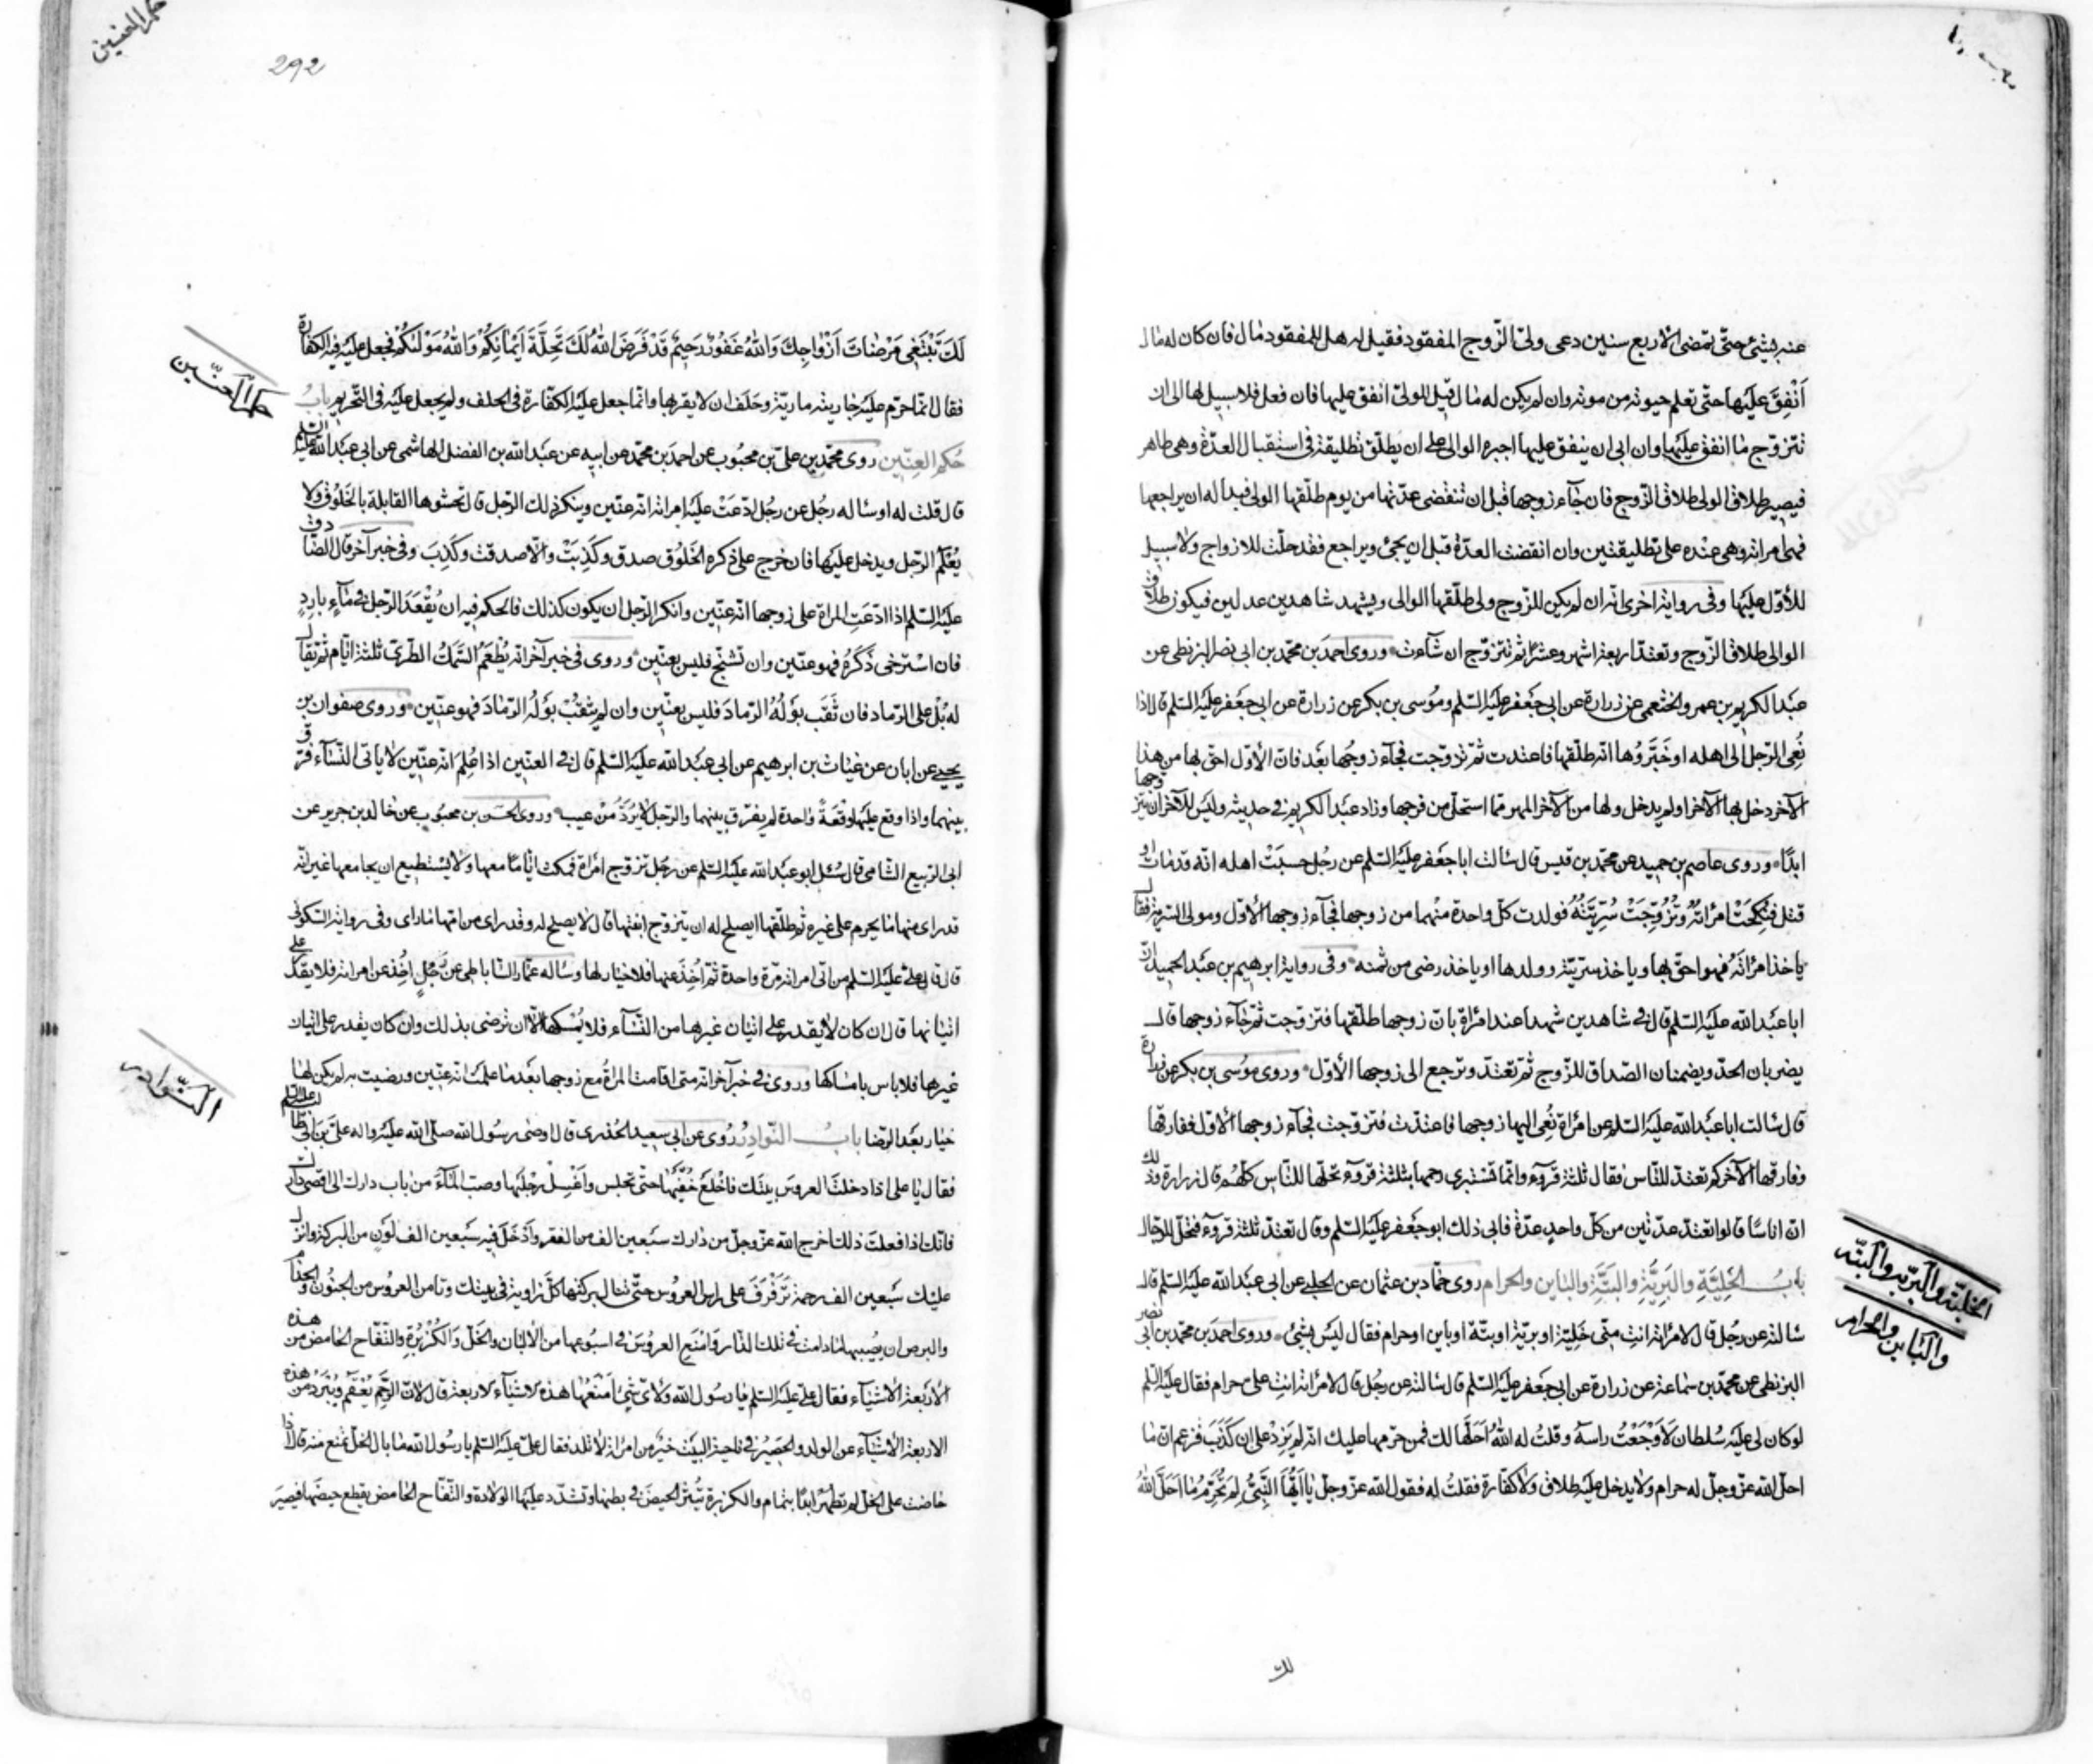 عنه بشيئ حتى تمضى الاربع سنين دعى ولىّ الزّوج المفقود فقيل له هل للمفقود مال فان كان له مال
اَنْفِقَ عَلَيها حتّى تعلم حيوته من موته وان لم يكن له مال قيل للولىّ انفق عليها فان فعل فلا سبيل لها الى ان
تتزوّج ما انفق عليها وان ابى ان ينفق عليها اجبره الوالى على ان يطلّق تطليقة فى استقبال العدّة وهى طاهر
فيصير طلاق الولى طلاق الزّوج فان جٓاء زوجها قبل ان تنقضى عدّتها من يوم طلّقها الولى فبدا له ان يراجعها
فهى امراته وهى عنده على تطليقتين وان انقضت العدّة قبل ان يجئ ويراجع فقد حلّت للازواج ولا سبيل
للأوّل عليها وفى رواية اخرى انّه ان لم يكن للزّوج ولى طلّقها الوالى ويشهد شاهدين عدلين فيكون طلاق
الوالى طلاق الزّوج وتعتدّ اربعة اشهر وعشرًا ثم تتزوّج ان شآءت وروى احمد بن محمّد بن ابى نصر البزنطى عن
عبد الكريم بن عمرو الخثعمى عن زرارة عن ابى جعفر عليه السّلم وموسى بن بكر عن زرارة عن ابى جعفر عليه السّلم قال اذا
نُعِى الرّجل الى اهله او خَبَّروُها انّه طلّقها فاعتدت ثمّ تزوّجت فجآء زوجُها بَعد فانّ الأوّل احقّ بها من هذا
الآخر دخل بها الآخر او لم يدخل ولها من الآخر المهر بما استحلّ من فرجها وزاد عبد الكريم فى حديثه وليس للآخر ان يتزوجها
ابدًا وروى عاصم بن حميد عن محمّد بن قيس قال سالت ابا جعفر عليه السّلم عن رجُل حسبَتْ اهله انّه قدمات او
قتل فنُكِحَتْ امرَاتُه وتَزَوَّجَتْ سُرّيّتُهُ فولدت كلّ واحدة منهما من زوجها فجآء زوجها الأوّل ومولى السّريّة فقال
ياخذ امرَاتَهُ فهو احقّ بها وياخذ سريّته وولدها او ياخذ رضى من ثمنه وفى رواية ابرهيم بن عبد الحميد انّ
ابا عبد الله عليه السّلم قال فى شاهدين شهدا عند امرَاة بانّ زوجها طلّقها فتزوّجت ثمّ جٓاء زوجها قال
يضربان الحدّ ويضمنان الصّداق للزّوج ثم تعتدّ وترجع الى زوجها الأوّل وروى موسى بن بكر عن زرارة
قال سالت ابا عبد الله عليه السّلم عن امرَاة نُعِى اليها زوجها فاعتدّت فتزوّجت فجآء زوجها الأوّل ففارقها
وفارقها الآخر كم تعتدّ للنّاس فقال ثلثة قروٓء وانّما تستبرى رحمها بثلثة قروٓء تحلّها للنّاس كلّهم قال زرارة وذلك
انّ اناسًا قالوا تعتدّ عدّتين من كلّ واحدٍ عدّة فابى ذلك ابو جعفر عليه السّلم وقال تعتدّ ثلثة قروٓء فتحلّ للرّجال
بابُ الخَلِيَّةِ والبَرِيَّةِ والبَتَّةِ والبَاين والحرام روى حمّاد بن عثمان عن الحلبى عن ابى عبد الله عليه السّلم قال
سالته عن رجُل قال لامرَاته انتِ منّى خَلِيّة او بريّة او بتّة او باين او حرام فقال ليس بشئ وروى احمد بن محمّد بن ابى نصر
البزنطى عن محمّد بن سماعة عن زرارة عن ابى جعفر عليه السّلم قال سالته عن رجُل قال لامرَاته انتِ علىّ حرام فقال عليه السّلم
لو كان لى عليه سُلطان لَاَوْجَعْتُ راسهُ وقلتُ له اللهُ احَلّها لك فمن حرّمها عليك انّه لم يَزِدْ على ان كَذَبَ فزعم انّ ما
احلّ الله عزّ وجلّ له حرام ولا يدخل عليه طلاق ولا كفّارة فقلتُ له فقول الله عزّ وجلّ يا اَيُّهَا النَّبِىُّ لِمَ تُحَرِّمُ ما اَحَلَّ اللهُ
الخليّة والبريّة والبتّه
والباين والحرام
لك
292
لَكَ تَبْتَغِى مَرْضَاتَ اَزْواجِكَ وَاللهُ غَفُورٌ رَحِيمٌ قَدْ فَرَضَ اللهُ لَكَ تَحِلَّةَ اَيْمانِكُمْ وَاللهُ مَوْلٰكُمْ فجعل عليه فيه الكفارة
فقال انّما حرّم عليه جاريته مارية وحَلَف ان لا يقربها وانّما جعل عليه الكفّارة فى الحلف ولم يجعل عليه فى التّحريم بابُ
حُكم العِنّين روى محمّد بن علىّ بن محبُوب عن احمد بن محمّد عن ابيه عن عبد الله بن الفضل الهاشمى عن ابى عبد الله عليه السّلم
قال قلت له او ساله رجُل عن رجُل ادّعَتْ عليه امراته انّه عنّين وينكر ذلك الرّجل قال تحشوها القابلة بالخَلوُق ولا
يُعَلّم الرّجل ويدخل عليها فان خرج على ذكره الخَلوُق صدق وكذِبَتْ والّا صدقت وكَذِبَ وفى خبر آخر قال الصّادق
عليه السّلم اذا ادّعَتِ المراة على زوجها انّه عنّين وانكر الرّجل ان يكون كذلك فالحكم فيه ان يُقْعَدَ الرّجل فى مآءٍ باردٍ
فان اسْترخى ذَكَرُهُ فهو عنّين وان تشنّج فليس بعنّين وروى فى خبر آخر انّه يُطْعَمُ السَّمَكُ الطّرىّ ثلثة ايّام ثم يقال
له بُلْ على الرّماد فان ثَقَّب بوَلُهُ الرّمادَ فليس بعنّين وان لم يثقّبْ بوَلُه الرّمادَ فهو عنّين وروى صفوان بن
يحيى عن ابان عن غياث بن ابرهيم عن ابى عبد الله عليه السّلم قال فى العنّين اذا عُلِمَ انّه عنّين لا ياتى النّسٓاء فرّق
بينهما واذا وقع عليها وقعَةً واحدة لم يفرّق بينهما والرّجل لا يُرَدُّ مِنْ عيب وروى الحسن بن محبُوب عن خالد بن جرير عن
ابى الرّبيع الشّامى قال سُئل ابو عبد الله عليه السّلم عن رجُل تزوّج امرَاة فمكث ايّامًا معها ولا يَسْتطيع ان يجامعها غير انّه
قد راى منها ما يحرم على غيره ثم طلّقها ايصلح له ان يتزوّج ابنتها قال لا يصلح له وقد راى من امّها ما راى وفى رواية السّكونى
قال قال علىّ عليه السّلم من اتى امراته مرّة واحدة ثمّ اُخِذَ عنها فلا خيار لها وساله عمّار السّاباطى عن رَجُلٍ اُخِذ عن امراته فلا يقدر على
اتيانها قال ان كان لا يقدر على اتيان غيرها من النّسٓاء فلا يُمْسكها الّا ان ترضى بذلك وان كان يقدر على اتيان
غيرها فلا باس بامساكها وروى فى خبر آخر انّه متى اقامت المراةُ مع زوجها بعد ما علمت انّه عنّين ورضيت به لم يكن لها
خيار بَعد الرّضا بابُ النّوادِر رُوى عن ابى سعيد الخُدرى قال اوصى رسُول الله صلّى الله عليه واله علىَّ بنَ ابى طالب عليه السّلم
فقال يا على اذا دخلَت العروس بيتَك فاخْلَعْ خُفَّيْها حتّى تجلس واغْسِلْ رِجْلَيها وصبّ المآءَ من باب دارك الى اقصى دارك
فانّك اذا فعلتَ ذلك اخرج الله عزّ وجلّ من دارك سَبعين الف من الفقر وادْخَلَ فيه سَبعين الف لَوْنٍ من البركة وانزل
عليك سَبعين الف رحمة تَرَفْرَفَ على راس العروُس حتّى تنال بركتها كلّ زاوية فى بيتك وتامن العروُس من الجنُون والجذام
والبرص ان يُصيبها ما دامت فى تلك الدّار وامْنَعِ العروُسَ فى اسبُوعها من الألبان والخَلّ والكُزْبُرَةِ والتّفّاح الحامض من هذه
الأرْبعة الأشيآء فقال علىّ عليه السّلم يا رسُول الله ولأىّ شئ امْنَعُها هذه الاشيآء الاربعة قال لانّ الرَّحِمَ يُعْقَمُ ويَبْرُدُ من هذه
الاربعة الأشيآء عن الولد والحَصِيرُ فى ناحية البيت خَيرٌ من امرَاة لا تلد فقال علىّ عليه السّلم يا رسُول الله ما بال الخلّ تمنع منه قال اذا
حاضت على الخلّ لم تطهُرْ ابدًا بتمام والكزبرة تُثيرُ الحيضَ فى بطنها وتشدّد عليها الولادة والتّفّاح الحامض يقطع حيضها فيصيرَ
النّوادر